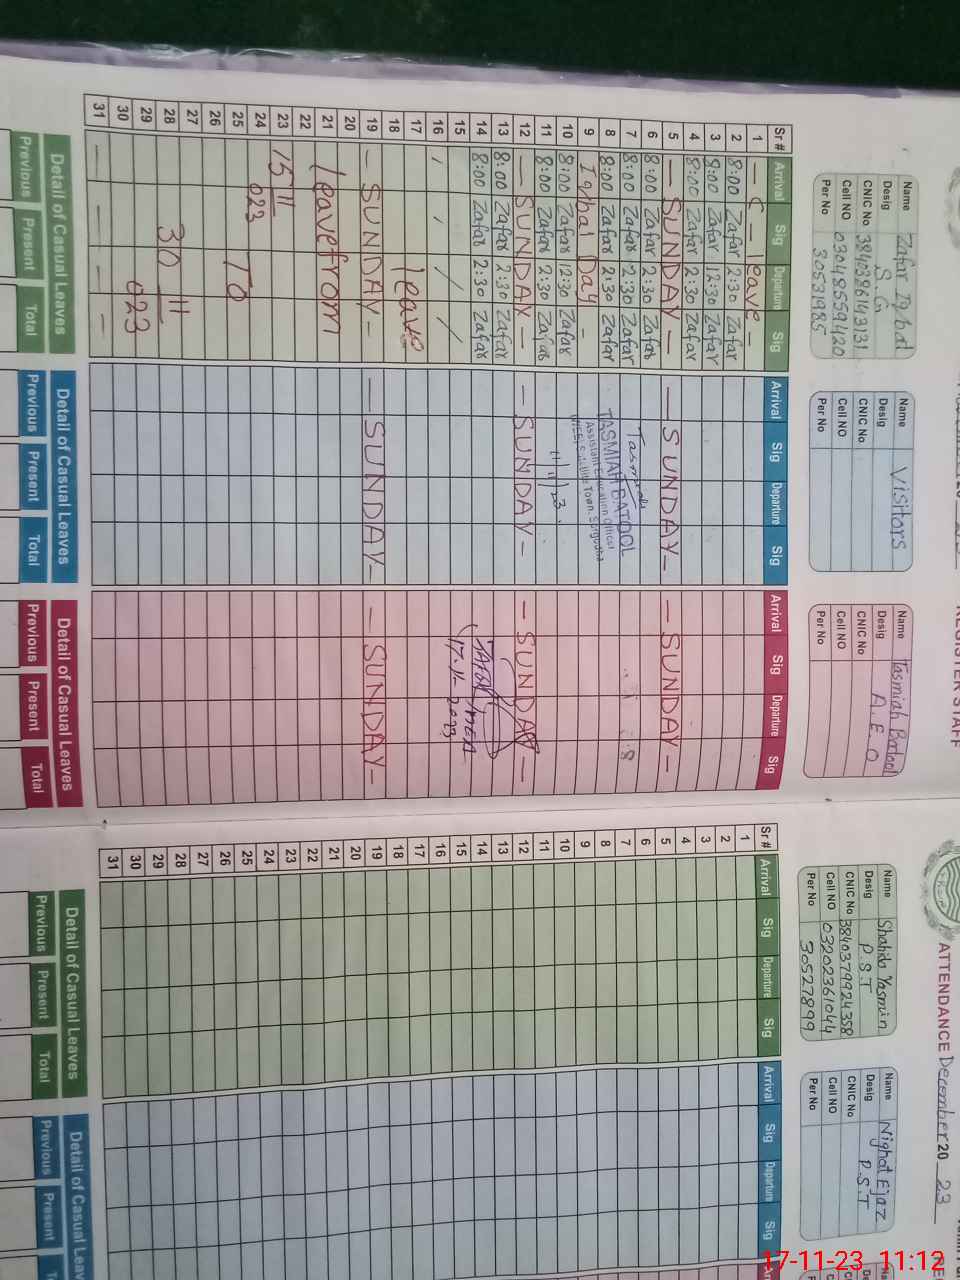 REGISTER STAFF
Name Zafar Iqbal
Desig S.Gn
CNIC No 3840386143131
Cell NO 03048559420
Per No 30531985
Name Visitors
Desig
CNIC No
Cell NO
Per No
Name Tasmiah Batool
Desig A.E.O
CNIC No
Cell NO
Per No
Sr # Arrival Sig Departure Sig Arrival Sig Departure Sig Arrival Sig Departure Sig
1 — C — leave —
2 8:00 Zafar 2:30 Zafar
3 8:00 Zafar 12:30 Zafar
4 8:00 Zafar 2:30 Zafar
5 — SUNDAY — — SUNDAY — — SUNDAY —
6 8:00 Zafar 2:30 Zafar
7 8:00 Zafar 2:30 Zafar Tasmiah
8 8:00 Zafar 2:30 Zafar TASMIAH BATOOL
Assistant Education Officer
9 Iqbal Day - Town, Sargodha
10 8:00 Zafar 12:30 Zafar
11 8:00 Zafar 2:30 Zafar 11/11/23
12 — SUNDAY — — SUNDAY — — SUNDAY —
13 8:00 Zafar 2:30 Zafar
14 8:00 Zafar 2:30 Zafar
15 17-11-2023
16
17 leave
18
19 — SUNDAY — — SUNDAY — — SUNDAY —
20
21 leave from
22
23 15/11
24 023
25 To
26
27
28 30/11
29 023
30
31
Detail of Casual Leaves Detail of Casual Leaves Detail of Casual Leaves
Previous Present Total Previous Present Total Previous Present Total
ATTENDANCE December 20 23
Name Shahida Yasmin
Desig P.S.T
CNIC No 3840379924358
Cell NO 03202361044
Per No 30527899
Name Nighat Ejaz
Desig P.S.T
CNIC No
Cell NO
Per No
Sr # Arrival Sig Departure Sig Arrival Sig Departure Sig
1
2
3
4
5
6
7
8
9
10
11
12
13
14
15
16
17
18
19
20
21
22
23
24
25
26
27
28
29
30
31
Detail of Casual Leaves Detail of Casual Leav
Previous Present Total Previous Present
17-11-23 11:12